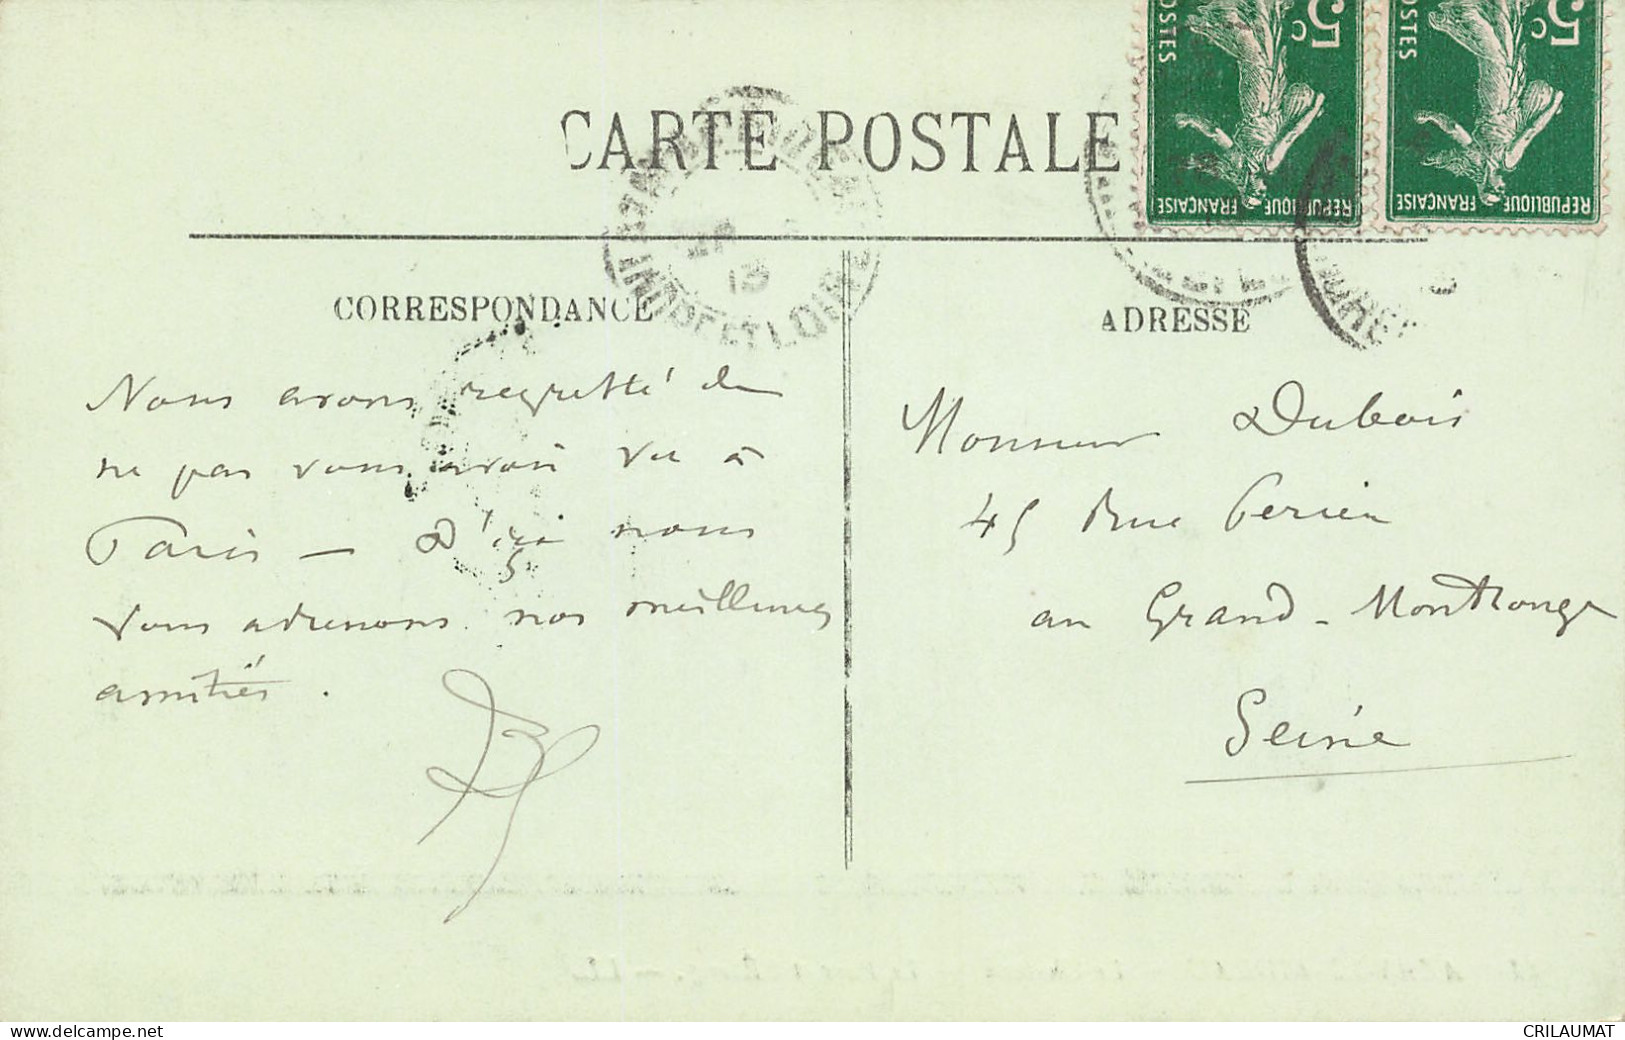 CARTE POSTALE
5c
POSTES
REPUBLIQUE FRANÇAISE
5c
POSTES
REPUBLIQUE FRANÇAISE
INDRE ET LOIRE
13
CORRESPONDANCE
Nous avons regretté de
ne pas vous avoir vu à
Paris — D'ici nous
vous adressons nos meilleures
amitiés.
ADRESSE
Monsieur Dubois
45 Rue Perier
au Grand-Montrouge
Seine
www.delcampe.net
CRILAUMAT